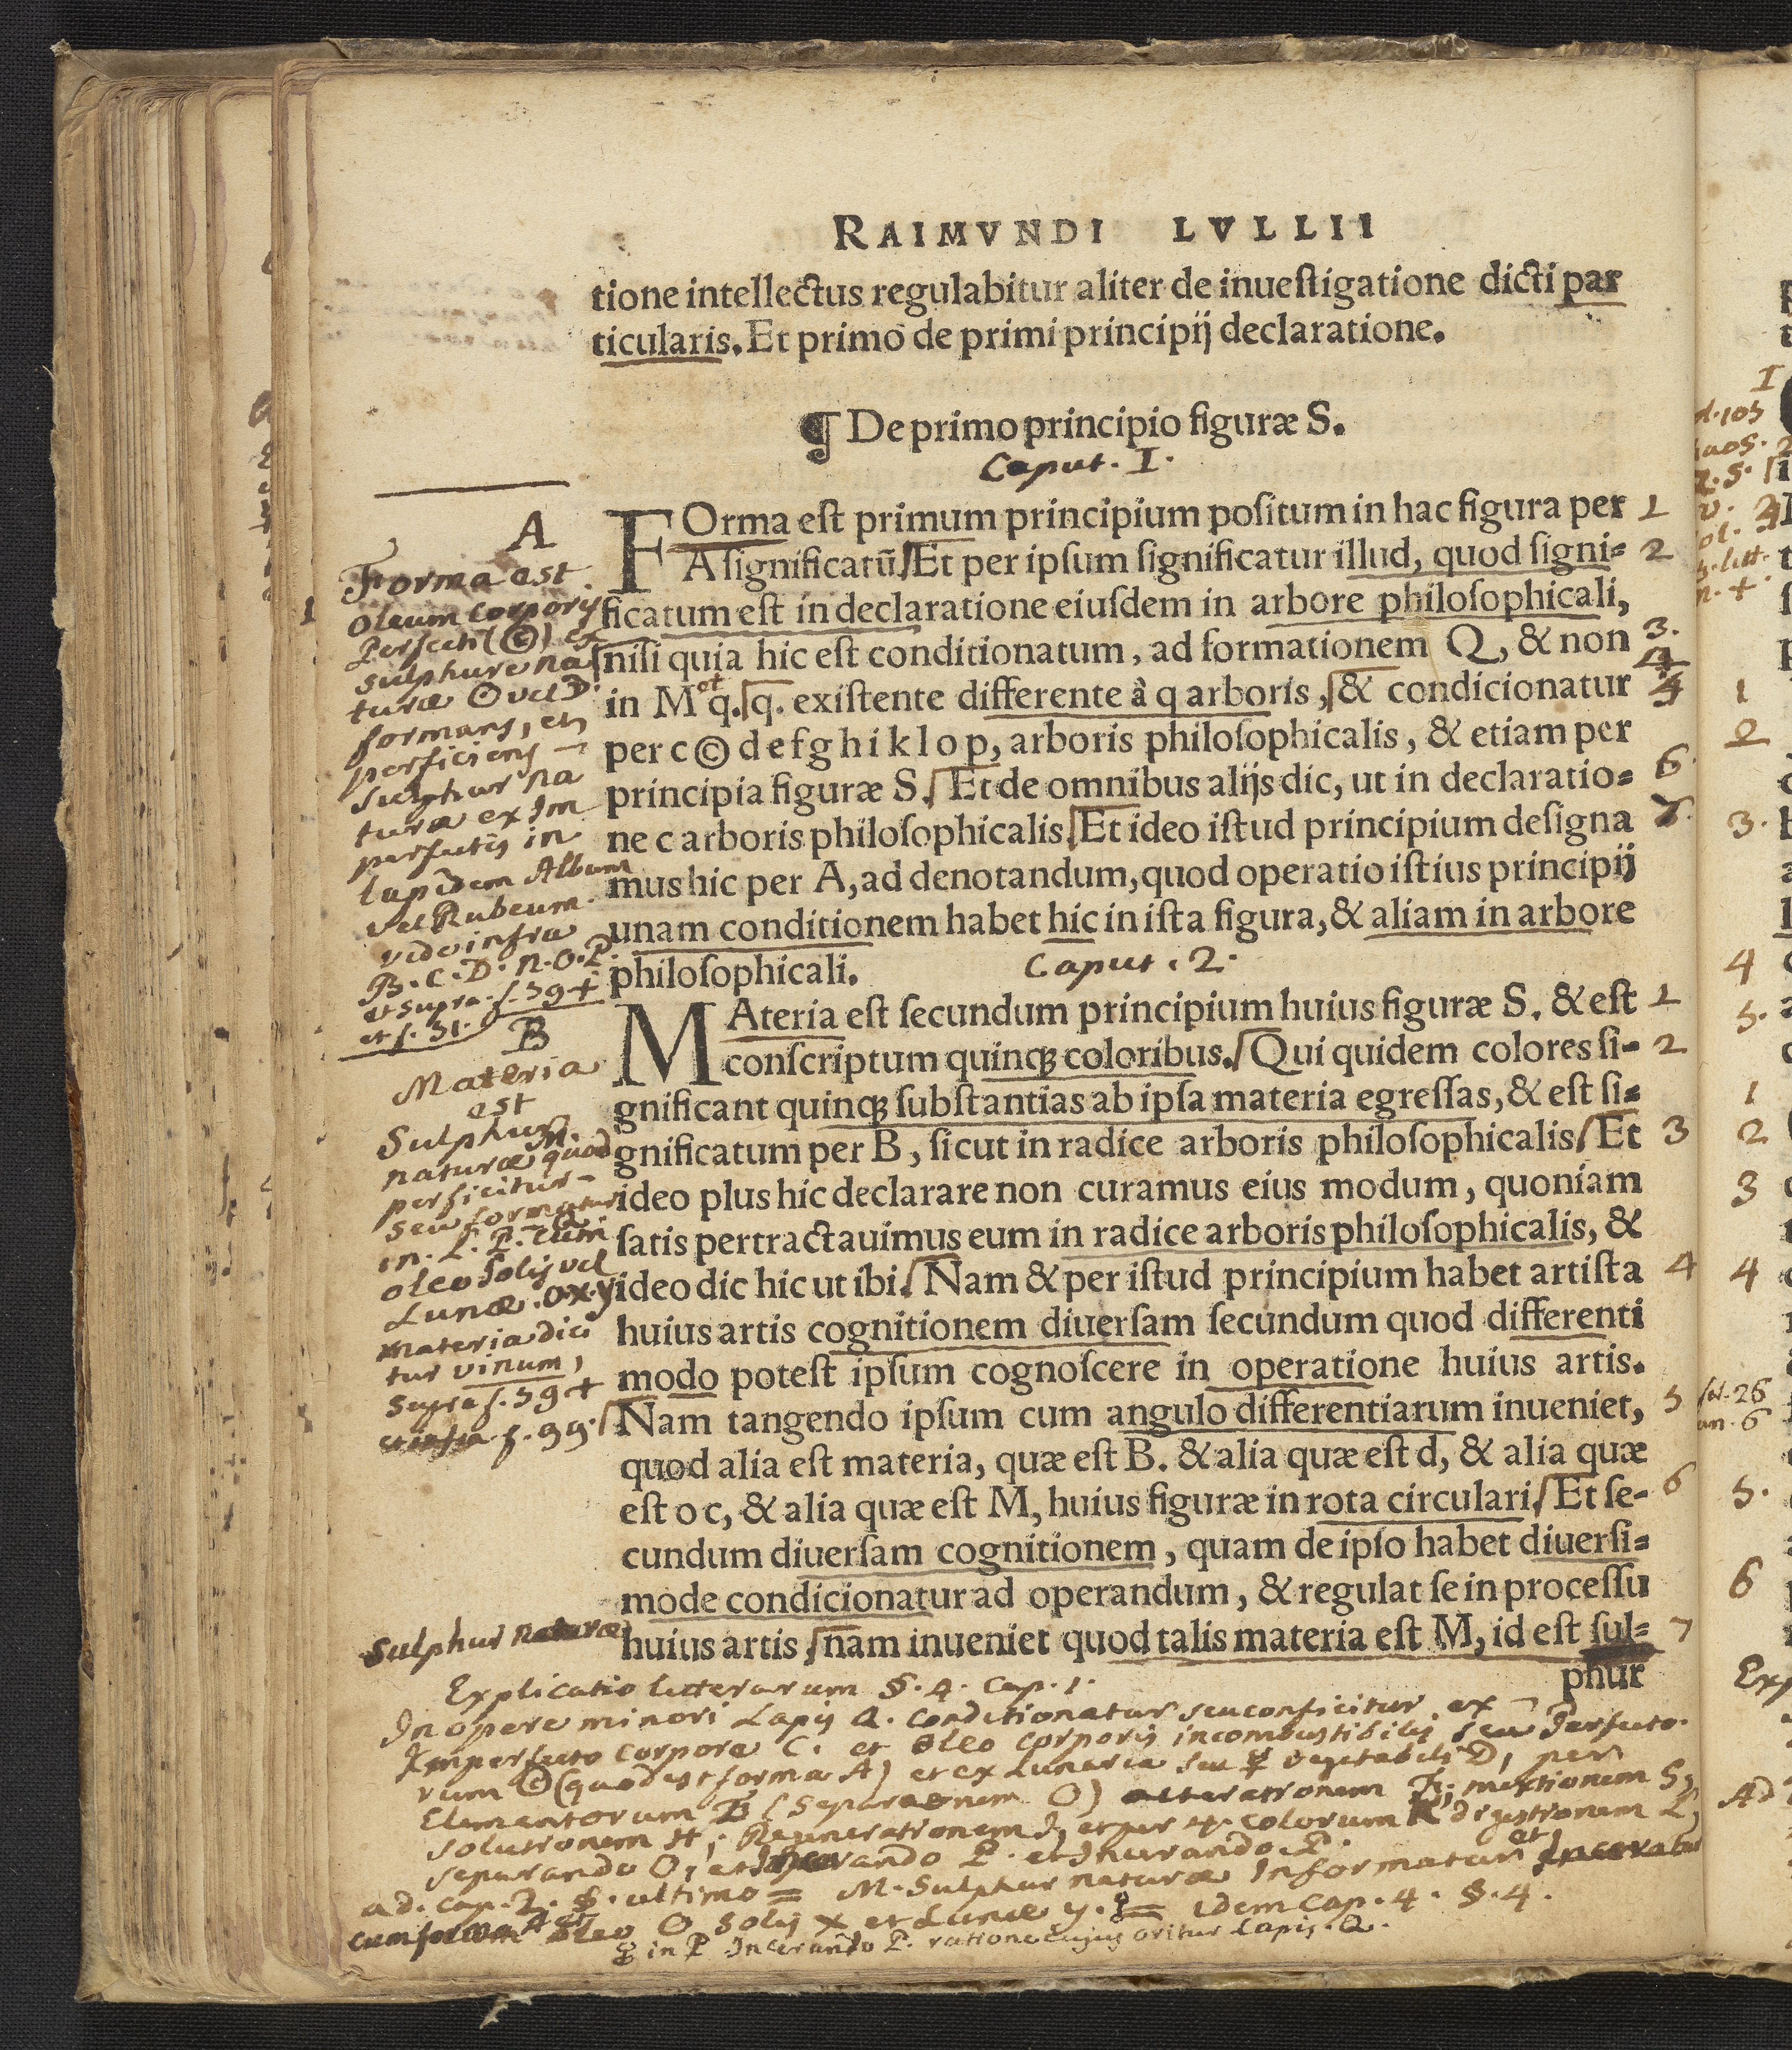 RAIMVNDI LVLLII
tione intellectus regulabitur aliter de inueſtigatione dicti par
ticularis. Et primo de primi principij declaratione.
¶ De primo principio figuræ S.
Caput. I.
FOrma eſt primum principium poſitum in hac figura per 1
A ſignificatū. Et per ipſum ſignificatur illud, quod ſigni= 2
ficatum eſt in declaratione eiuſdem in arbore philoſophicali,
niſi quia hic eſt conditionatum, ad formationem Q, & non 3.
in M et q. q. exiſtente differente à q arboris, & condicionatur 4
per c © d e f g h i k l o p, arboris philoſophicalis, & etiam per
principia figuræ S. Et de omnibus alijs dic, ut in declaratio= 6
ne c arboris philoſophicalis. Et ideo iſtud principium deſigna
mus hic per A, ad denotandum, quod operatio iſtius principij
unam conditionem habet hic in iſta figura, & aliam in arbore
philoſophicali.
Caput. 2.
MAteria eſt ſecundum principium huius figuræ S. & eſt 1
conſcriptum quinqȝ coloribus. Qui quidem colores ſi- 2
gnificant quinqȝ ſubſtantias ab ipſa materia egreſſas, & eſt ſi=
gnificatum per B, ſicut in radice arboris philoſophicalis. Et 3
ideo plus hic declarare non curamus eius modum, quoniam
ſatis pertractauimus eum in radice arboris philoſophicalis, &
ideo dic hic ut ibi. Nam & per iſtud principium habet artiſta 4
huius artis cognitionem diuerſam ſecundum quod differenti
modo poteſt ipſum cognoſcere in operatione huius artis.
Nam tangendo ipſum cum angulo differentiarum inueniet, 5
quod alia eſt materia, quæ eſt B. & alia quæ eſt d, & alia quæ
eſt o c, & alia quæ eſt M, huius figuræ in rota circulari. Et ſe- 6
cundum diuerſam cognitionem, quam de ipſo habet diuerſi=
mode condicionatur ad operandum, & regulat ſe in proceſſu
huius artis nam inueniet quod talis materia eſt M, id eſt ſul= 7
phur
A
Forma est
oleum corporis
perfecti (©) ex
sulphure na
turæ ☉ vel ☽
formans, et
perficiens
sulphur na
turæ ex Im
perfectis in
lapidem Album
vel Rubeum.
vide infra
B. C. D. N. O. P.
et supra. f. 39 +
et f. 31.
B
Materia
est
Sulphur
naturæ quod
perficitur
seu formatur
in. L. P. cum
oleo Solis vel
Lunæ. o.x.y
materia dici
tur vinum,
supra f. 39 +
f. 99.
Sulphur naturæ
Explicatio litterarum §. 4. cap. 1.
In opere minori Lapis Q. conditionatur seu conficitur ex
Imperfecto corpore C. et oleo corporis incombustibilis seu Perfecto.
rum © (quod est forma A) et ex Lunaria seu ☿ vegetabili D, per
Elementorum B (separationem O) alterationem mextionem
solutionem H; Regenerationem I, et per 4. colorum K digestionem L,
separando O, et rando P. et Incerando P.
ad. cap. 2. §. ultimo = M. Sulphur naturæ Informatur et Inceratur
cum forma A et oleo O Solis X et Lunæ y. = idem cap. 4. §. 4.
in P Incerando P. ratione cujus oritur Lapis. Q.